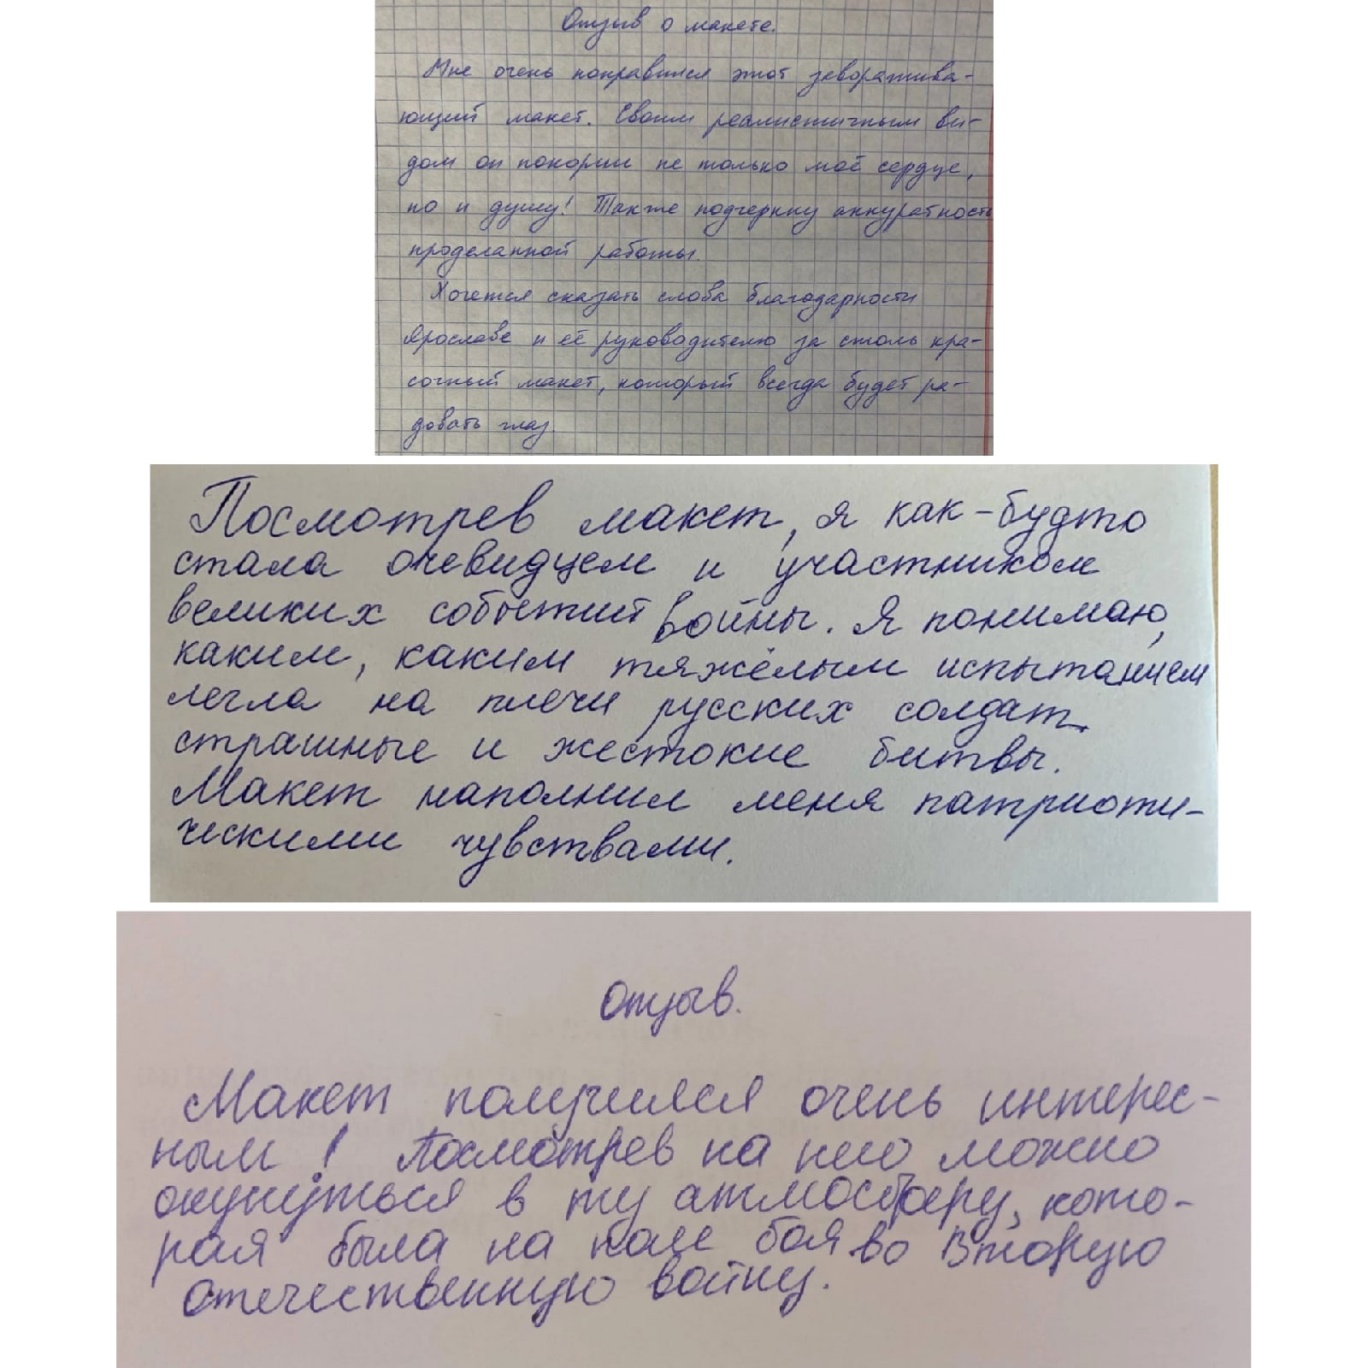 Отзыв о макете.
Мне очень понравился этот заворажива-
ющий макет. Своим реалистичным ви-
дом он покорил не только моё сердце,
но и душу! Также подчеркну аккуратность
проделанной работы.
Хочется сказать слова благодарности
Ярославе и её руководителю за столь кра-
сочный макет, который всегда будет ра-
довать глаз.
Посмотрев макет, я как-будто
стала очевидцем и участником
великих событий войны. Я понимаю,
каким, каким тяжёлым испытанием
легла на плечи русских солдат
страшные и жестокие битвы.
Макет наполнил меня патриоти-
ческими чувствами.
Отзыв.
Макет получился очень интерес-
ным! Посмотрев на него можно
окунуться в ту атмосферу, кото-
рая была на поле боя во Вторую
отечественную войну.